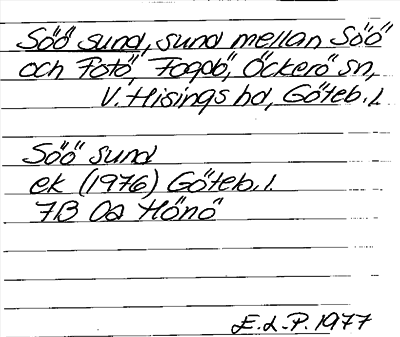 Söö sund, sund mellan Söö
och Fotö, Fogdö, Öckerö sn,
V. Hisings hd, Göteb. l.
Söö sund
ek (1976) Göteb. l.
7B 0a Hönö
E.L-P. 1977